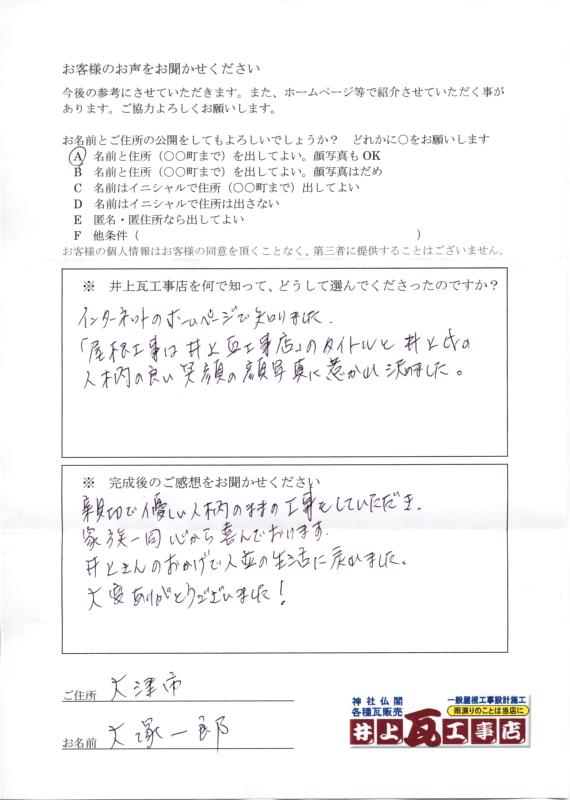 お客様のお声をお聞かせください
今後の参考にさせていただきます。また、ホームページ等で紹介させていただく事が
あります。ご協力よろしくお願いします。
お名前とご住所の公開をしてもよろしいでしょうか？　どれかに○をお願いします
A　名前と住所（○○町まで）を出してよい。顔写真も OK
B　名前と住所（○○町まで）を出してよい。顔写真はだめ
C　名前はイニシャルで住所（○○町まで）出してよい
D　名前はイニシャルで住所は出さない
E　匿名・匿住所なら出してよい
F　他条件（　　　　　　　　　　　　　　　　　　）
お客様の個人情報はお客様の同意を頂くことなく、第三者に提供することはございません。
※　井上瓦工事店を何で知って、どうして選んでくださったのですか？
インターネットのホームページで知りました.
「屋根工事は井上瓦工事店」のタイトルと井上氏の
人柄の良い笑顔の顔写真に惹かれ決めました。
※　完成後のご感想をお聞かせください
親切で優しい人柄のままの工事をしていただき.
家族一同心から喜んでおります.
井上さんのおかげで人並の生活に戻れました。
大変ありがとうございました！
ご住所　大津市
お名前　大塚一郎
神社仏閣　一般屋根工事設計施工
各種瓦販売　雨漏りのことは当店に
井上瓦工事店